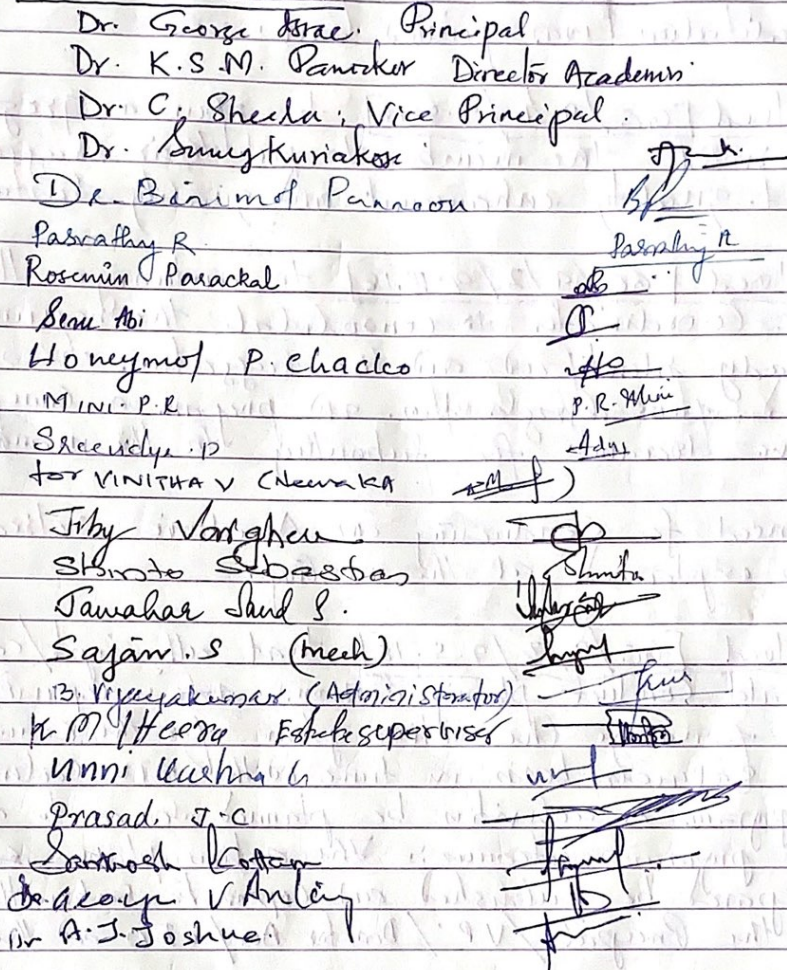 Dr. George Israe. Principal
Dr. K.S.M. Panicker Director Academin
Dr. C. Sheela, Vice Principal.
Dr. Sunny Kuriakose
Dr. Binimol Punnoose
Parvathy R Parvathy R
Rosemin Parackal
Senu Abi
Honeymol P. Chacko
MINI. P.R P.R. Mini
Sreevidya. P
for VINITHA V (
Jiby Varghese
Shinto Sebastian Shinto
Jawahar Saud S.
Sajan. S (Mech)
B. Vijayakumar (Administrator)
K M Heera Estate superviser
Unni
Prasad. J. C
Santhosh Kottam
Dr. George V Antony
Dr A.J. Joshua.